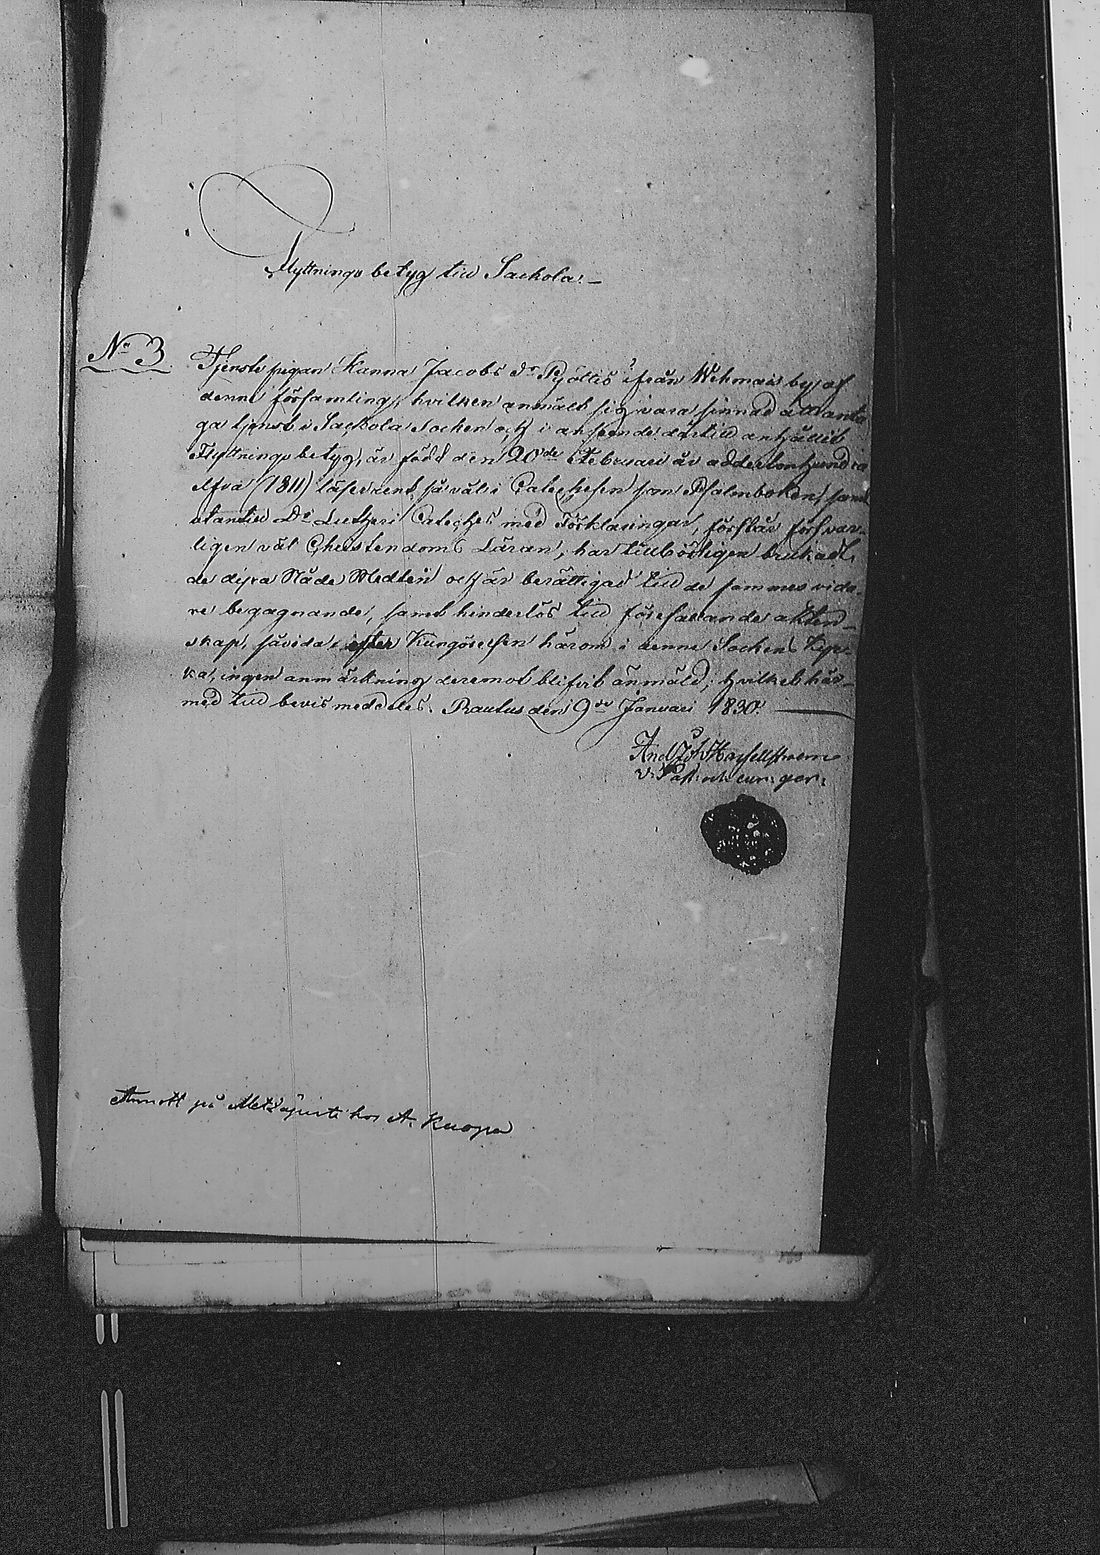 Flyttnings betyg till Sackola.
No 3
Tjenste pigan Hanna Jacobs dr Pyöllis ifrån Wehmais by af
denna församling, hvilken anmält sig vara sinnad att anta
ga tjenst i Sackola Socken och i anseende därtill anhållit
Flyttnings betyg, är född den 20de Februari år adderton hundra
elfva (1811) läser rent så väl i Catechesen som Psalmboken, samt
utantill Dr Lutheri Cateches med Förklaringar, förstår försvar
ligen väl Christendoms Läran, har tillbörligen brukadt
de dijra Nåde Medlen och är berättigad till de sammas vida
re begagnande, samt hinderlös till förefallande äkten-
skap, såvida efter Kungörelsen härom i denne Sockens Kijr-
ka, ingen anmärkning deremot blifvit anmäld; hvilket här-
med till bevis meddeles. Rautus den 9de Januari 1830.
And. Joh.
V: Past: och cur: ger:
på Metsäpirti hos A. Kuopa